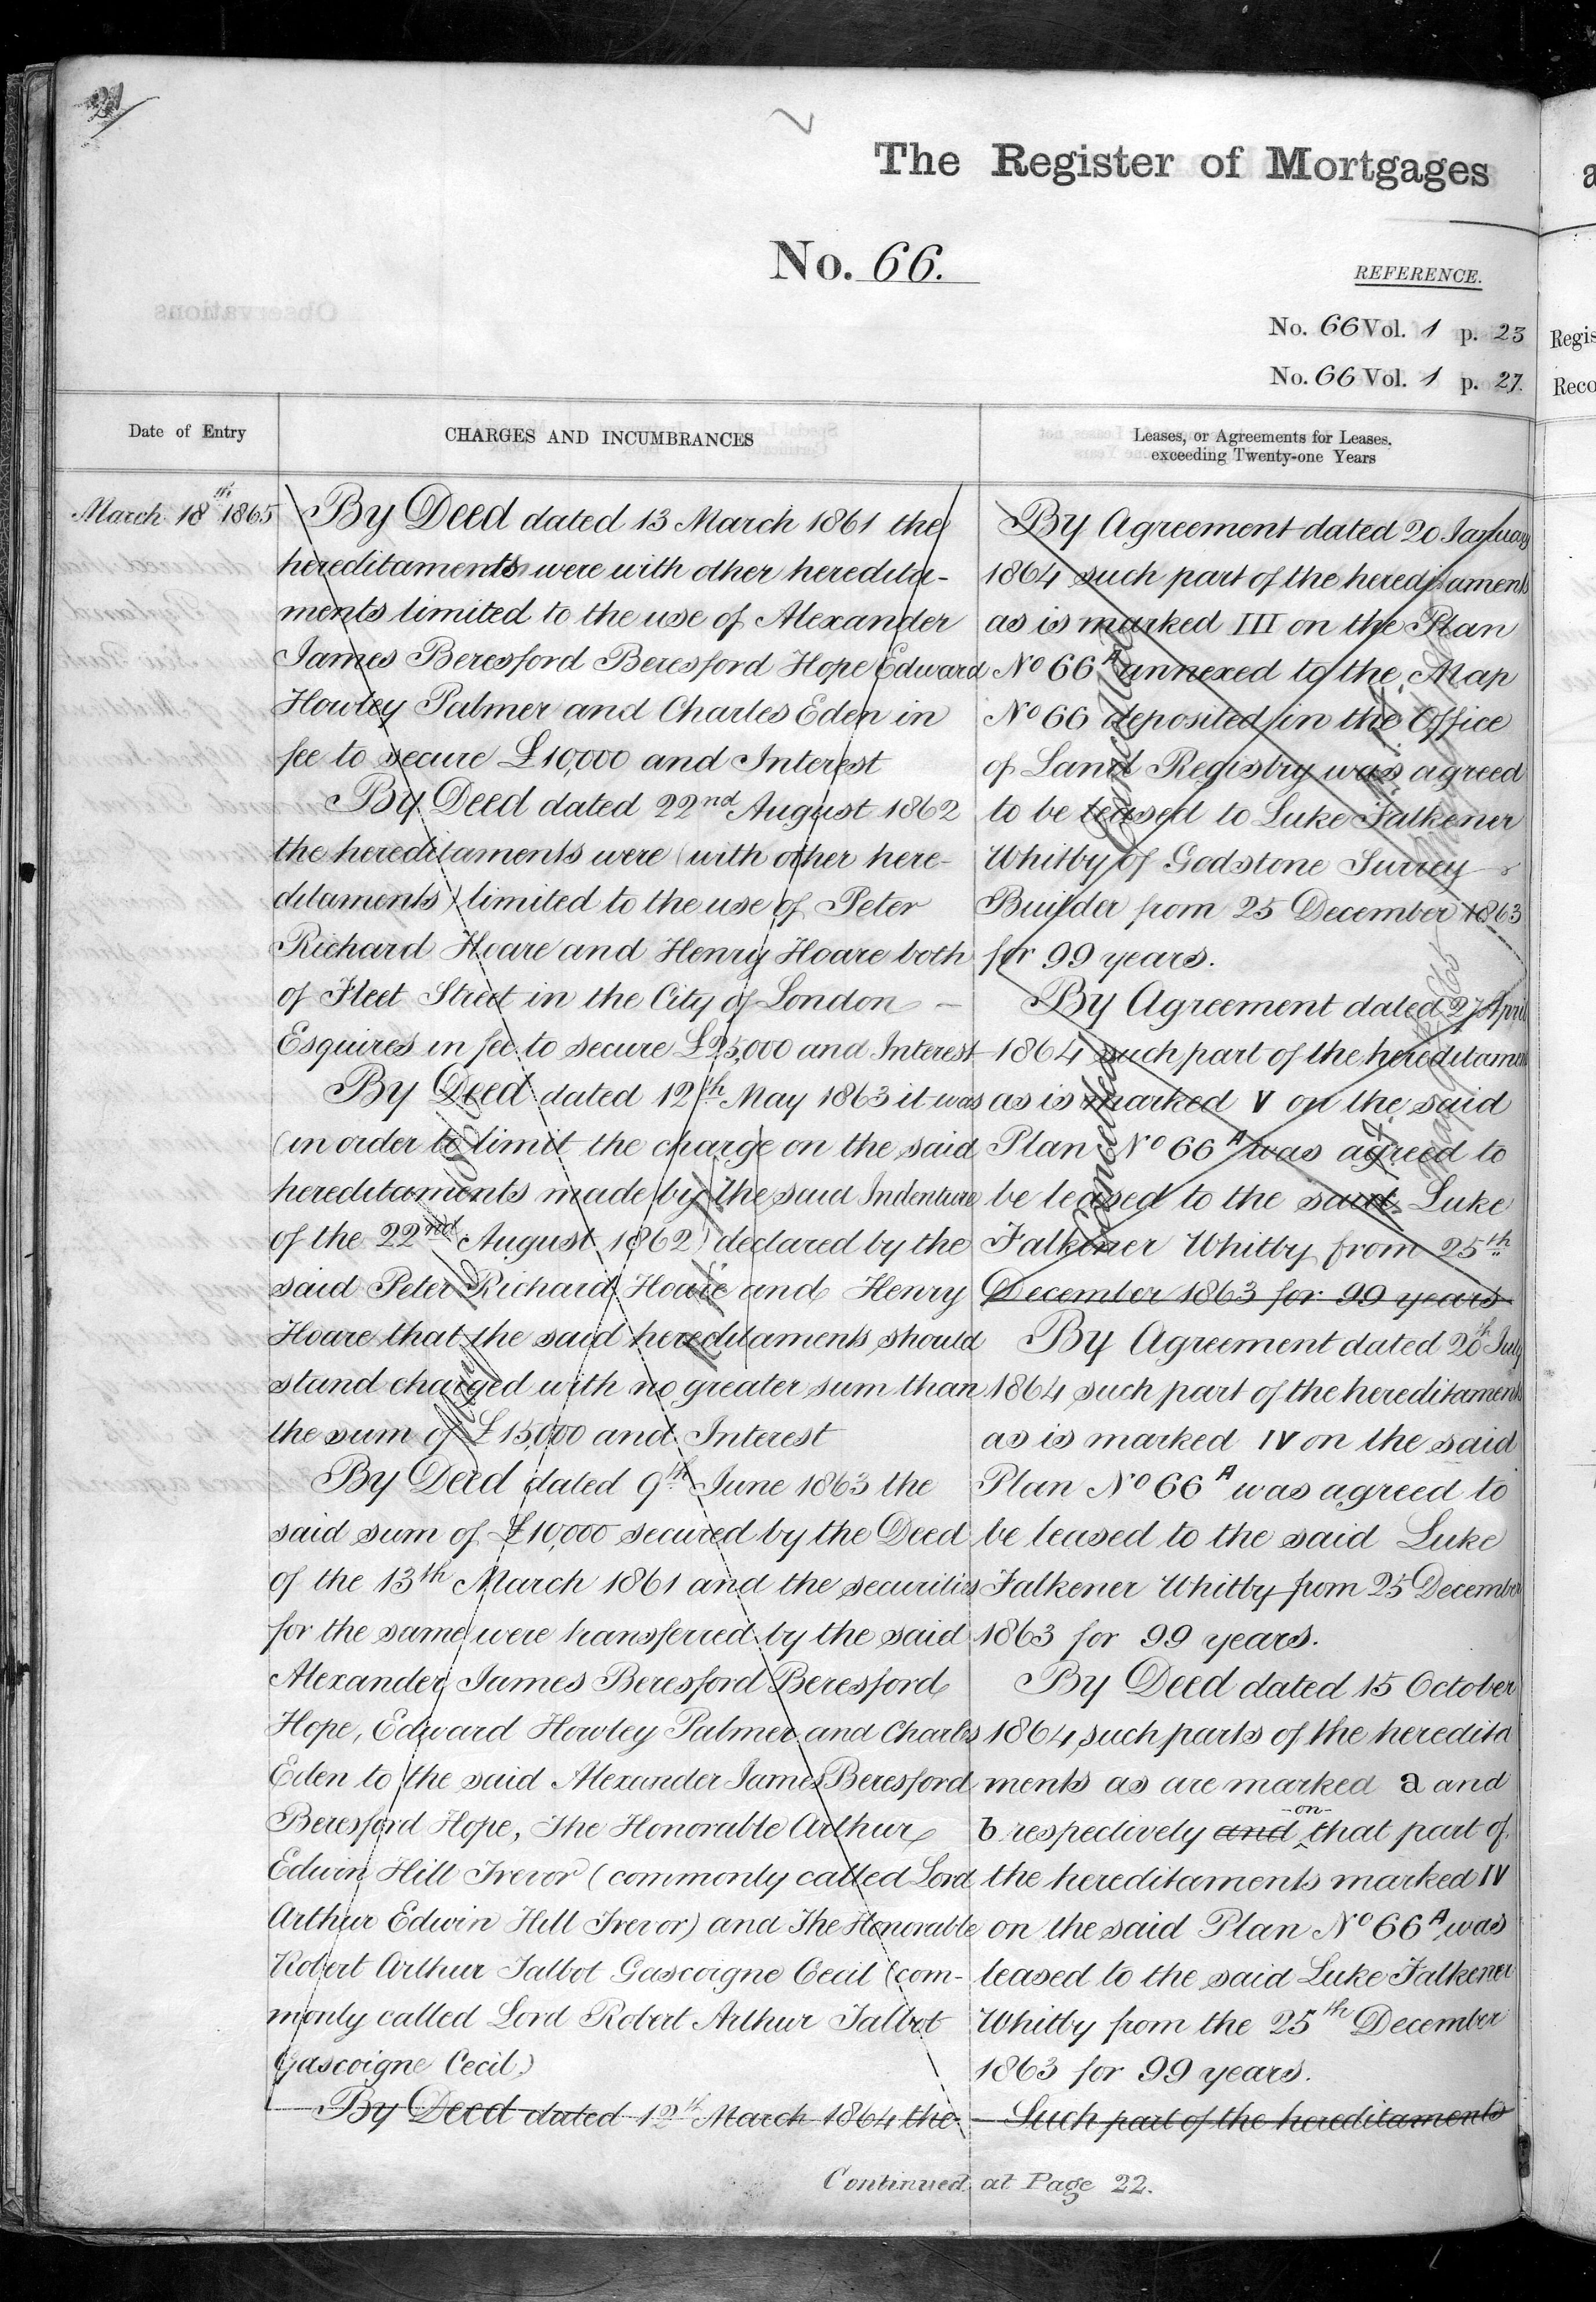 21
The Register of Mortgages
No. 66.
REFERENCE.
No. 66 Vol. 1 p. 23
No. 66 Vol. 1 p. 27.
Date of Entry
CHARGES AND INCUMBRANCES
Leases, or Agreements for Leases,
exceeding Twenty-one Years
March 18th 1865
By Deed dated 13 March 1861 the
hereditaments were with other heredita-
ments limited to the use of Alexander
James Beresford Beresford Hope Edward
Howley Palmer and Charles Eden in
fee to secure £10,000 and Interest
By Deed dated 22nd August 1862
the hereditaments were (with other here-
ditaments) limited to the use of Peter
Richard Hoare and Henry Hoare both
of Fleet Street in the City of London –
Esquires in fee to secure £25,000 and Interest
By Deed dated 12th May 1863 it was
(in order to limit the charge on the said
hereditaments made by the said Indenture
of the 22nd August 1862) declared by the
said Peter Richard Hoare and Henry
Hoare that the said hereditaments should
stand charged with no greater sum than
the sum of £15,000 and Interest
By Deed dated 9th June 1863 the
said sum of £10,000 secured by the Deed
of the 13th March 1861 and the securities
for the same were transferred by the said
Alexander James Beresford Beresford
Hope, Edward Howley Palmer and Charles
Eden to the said Alexander James Beresford
Beresford Hope, The Honorable Arthur
Edwin Hill Trevor (commonly called Lord
Arthur Edwin Hill Trevor) and The Honorable
Robert Arthur Talbot Gascoigne Cecil (com-
monly called Lord Robert Arthur Talbot
Gascoigne Cecil)
By Deed dated 12th March 1864 the
By Agreement dated 20 January
1864 such part of the hereditaments
as is marked III on the Plan
No 66A annexed to the Map
No 66 deposited in the Office
of Land Registry was agreed
to be leased to Luke Falkener
Whitby of Godstone Surrey
Builder from 25 December 1863
for 99 years.
By Agreement dated 27 April
1864 such part of the hereditament
as is marked V on the said
Plan No 66A was agreed to
be leased to the said Luke
Falkener Whitby from 25th
December 1863 for 99 years
By Agreement dated 20th July
1864 such part of the hereditaments
as is marked IV on the said
Plan No 66A was agreed to
be leased to the said Luke
Falkener Whitby from 25 December
1863 for 99 years.
By Deed dated 15 October
1864 such parts of the heredita
ments as are marked a and
b respectively and on that part of
the hereditaments marked IV
on the said Plan No 66A was
leased to the said Luke Falkener
Whitby from the 25th December
1863 for 99 years.
Such part of the hereditaments
Cancelled
Cancelled
Continued at Page 22.